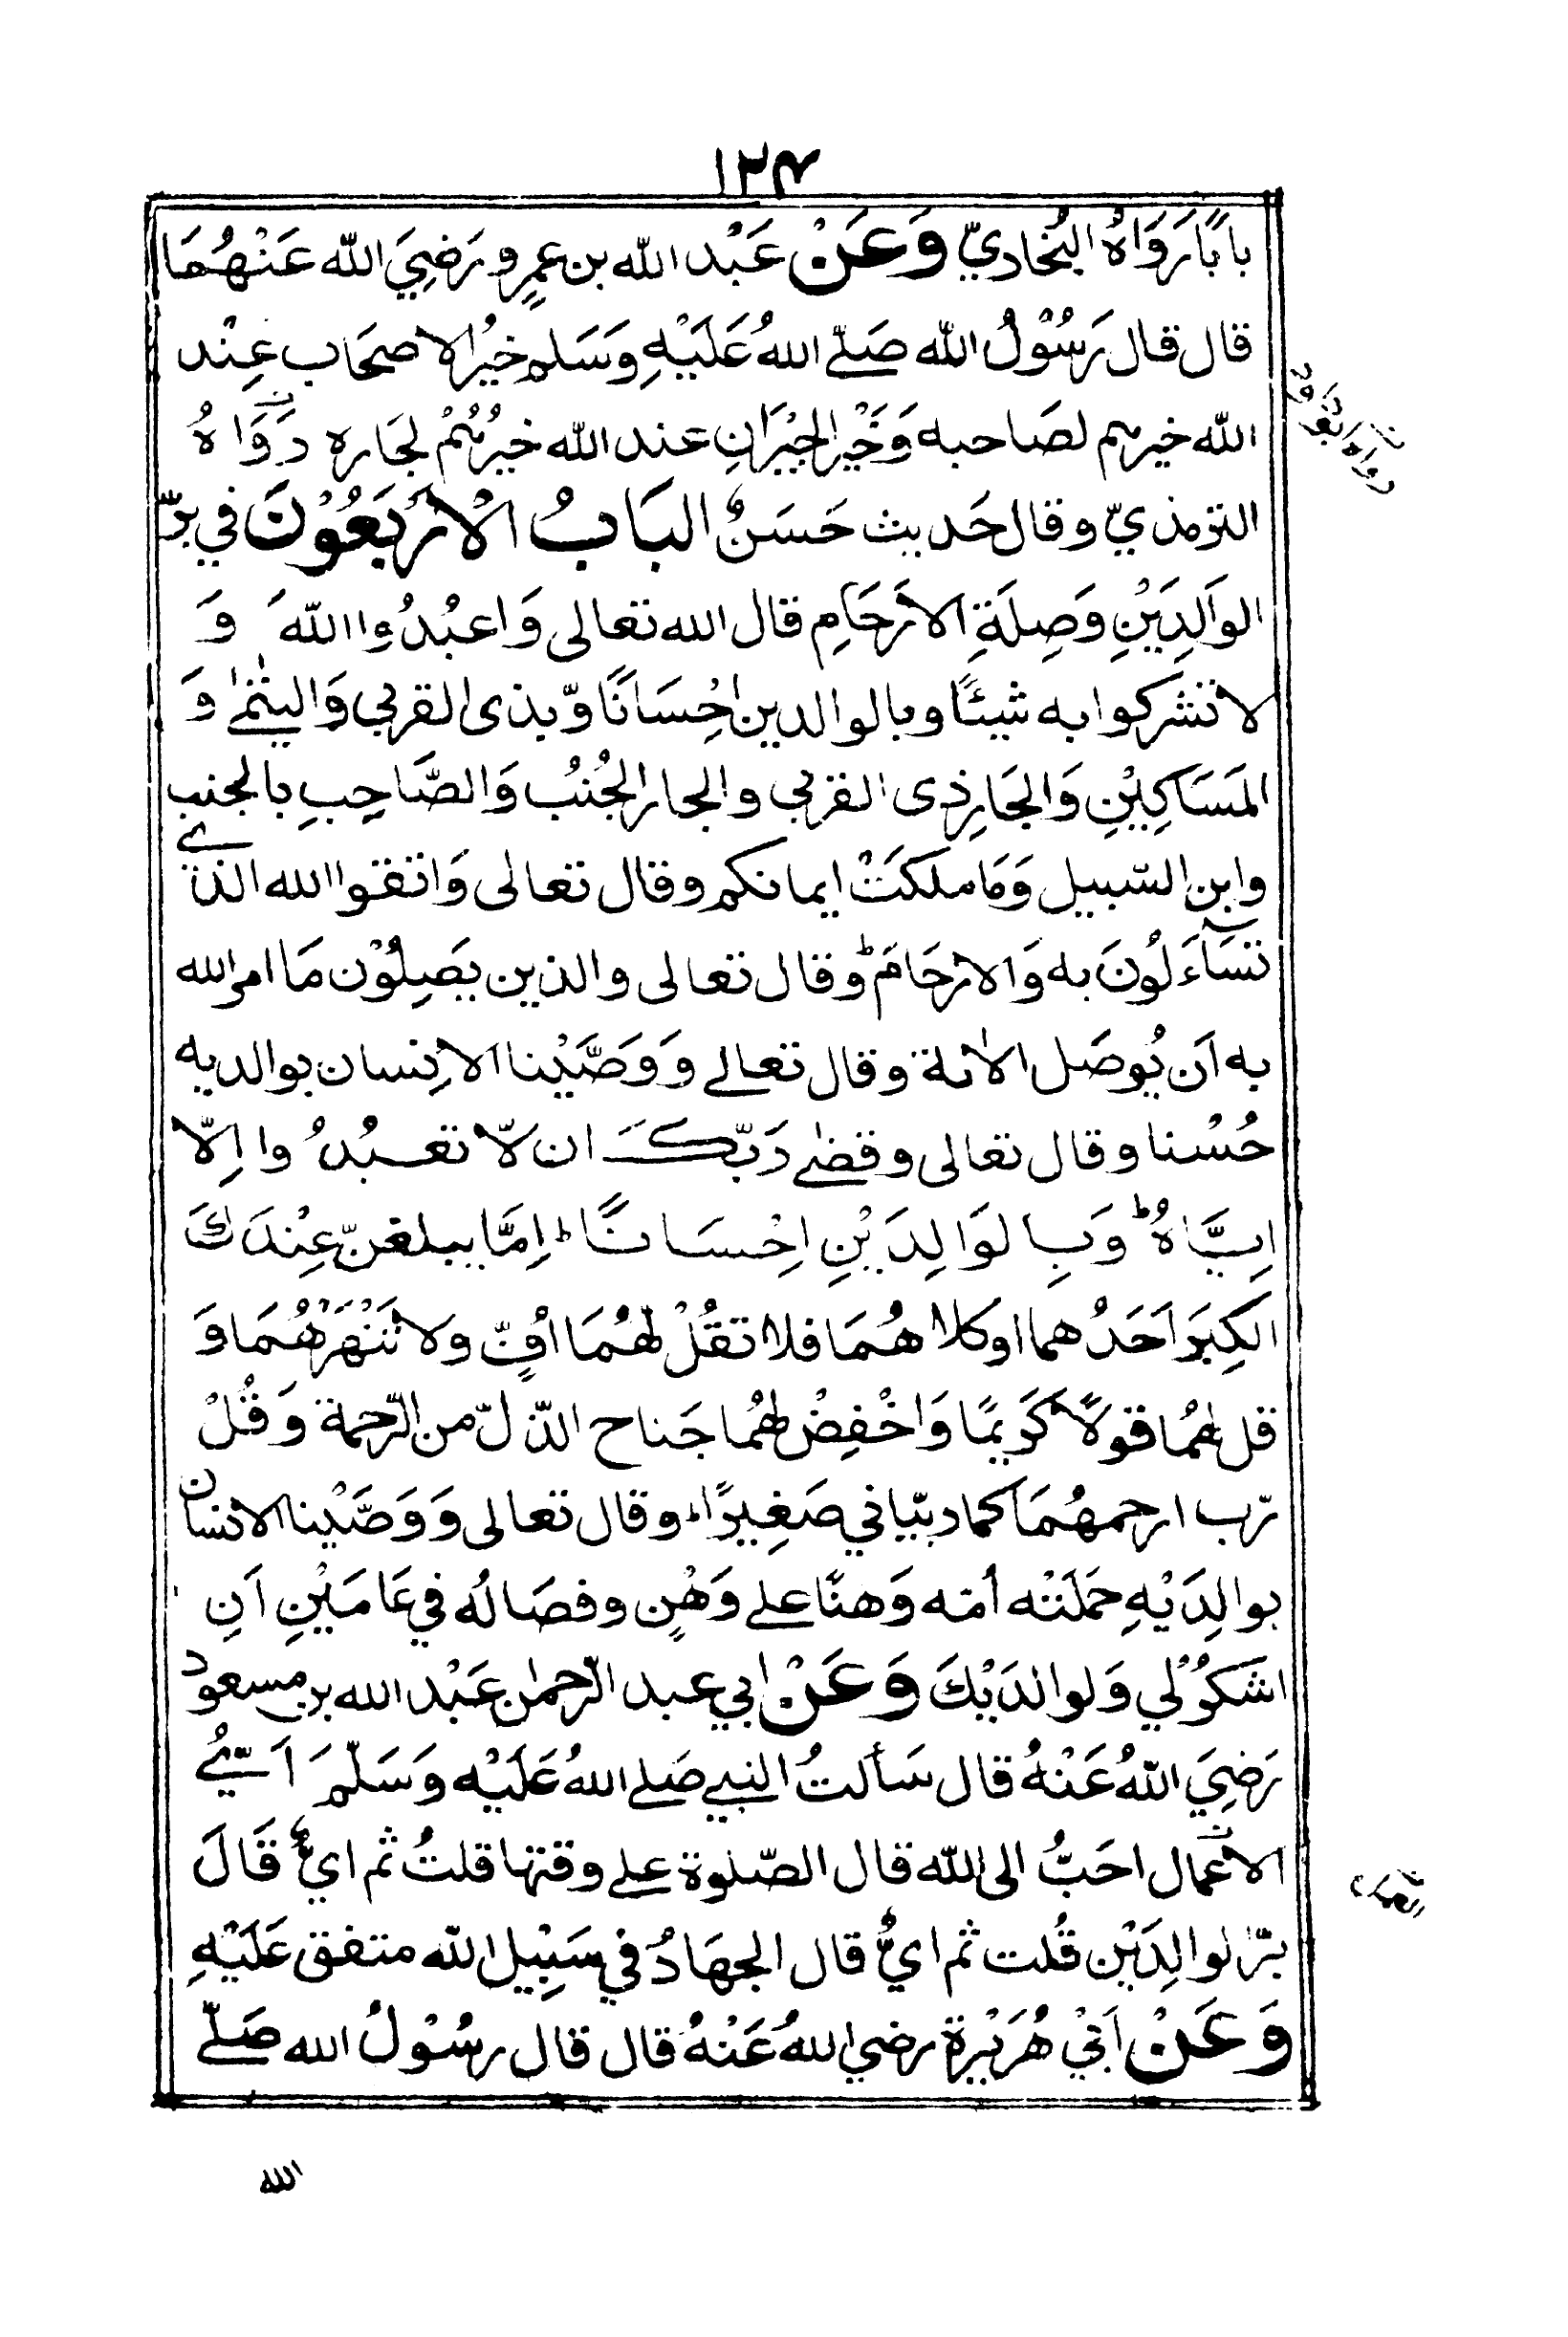 ١٢٤
بابًا رَوَاهُ البُخاريّ وَعَنْ عَبْد الله بن عمرٍو رَضِيَ الله عَنْهُمَا
قال قال رَسُوْلُ الله صَلّے اللهُ عَلَيْهِ وَسَلم خيرُ الاصحَاب عِنْد
الله خيرهم لصَاحبه وَخَيْر الجِيْرَانِ عند الله خيرُهُمْ لجَاره رَوَاهُ
الترمذيّ وقال حَديث حَسَنٌ البَابُ الْاَرْبَعُوْنَ في برّ
الوَالِدَيْنِ وَصِلَةِ الاَرْحَامِ قال الله تعالى وَاعبُدُوا اللهَ وَ
لا تشركوا به شيئًا وبالوالدين اِحْسَانًا وّبذى القربي وَاليتٰمٰے وَ
المَسَاكِيْنِ وَالجَارِ ذى القربي والجار الجُنُبِ وَالصَّاحِبِ بالجنب
وابن السّبيل وَمَا ملكَتْ ايمانكم وقال تعالى وَاتقوا الله الذے
تسَآءَلُونَ به وَالارْحَامَ ط وقال تعالى والذين يَصِلُوْن مَا امر الله
به اَن يُوصَل الاٰية وقال تعالے وَوَصَّيْنا الاِنسان بوالديه
حُسْنا وقال تعالى وقضٰے رَبّكَ ان لّا تعبُدُوا اِلّا
اِيَّاهُ ط وَبِالوَالِدَيْنِ اِحْسَانًا ط اِمَّا يبلغنّ عِنْدَكَ
الكِبَرَ اَحَدُهما او كلاهُمَا فلا تقُلْ لهُمَا اُفٍّ ولا تَنْهَرْهُمَا وَ
قل لهُما قولًا كَرَيمًا وَاخْفِضْ لهُما جَناح الذّلّ من الرّحمة وَقُلْ
رّب ارحمهُمَا كما ربّياني صَغِيرًا ط وقال تعالى وَوَصَّيْنا الانسان
بوالِدَيْهِ حَمَلَتْه اُمّه وَهنًا علے وَهْنٍ وفصَالُه في عَامَيْنِ اَنِ
اشكُرْلي وَلوالدَيْكَ وَعَنْ ابي عبد الرّحمٰن عَبْد الله بن مسعود
رَضِيَ اللهُ عَنْهُ قال سَألتُ النبي صَلے اللهُ عَلَيْه وَسَلّمَ اَيّ
الاعمال احَبُّ الى الله قال الصّلوة علے وقتها قلتُ ثم ايٌّ قَالَ
برّ الوالِدَيْن قُلت ثم ايٌّ قال الجهَادُ في سَبِيْل الله متفق عَلَيْهِ
وَعَنْ اَبيْ هُرَيْرة رضي اللهُ عَنْهُ قال قال رسُوْلُ الله صَلّے
الله